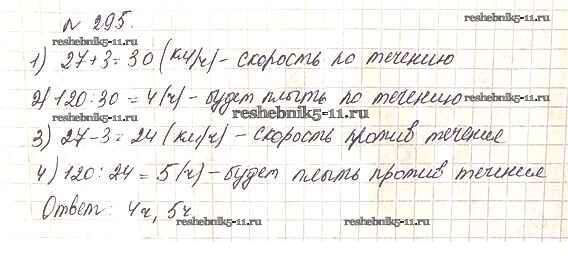 № 295.
reshebnik5-11.ru
reshebnik5-11.ru
1) 27+3=30 (км/ч) - скорость по течению
2) 120:30=4(ч) - будет плыть по течению
reshebnik5-11.ru
reshebnik5-11.ru
reshebnik5-11.ru
3) 27-3=24 (км/ч) - скорость против течения
4) 120:24=5(ч) - будет плыть против течения
Ответ: 4ч, 5ч
reshebnik5-11.ru
reshebnik5-11.ru